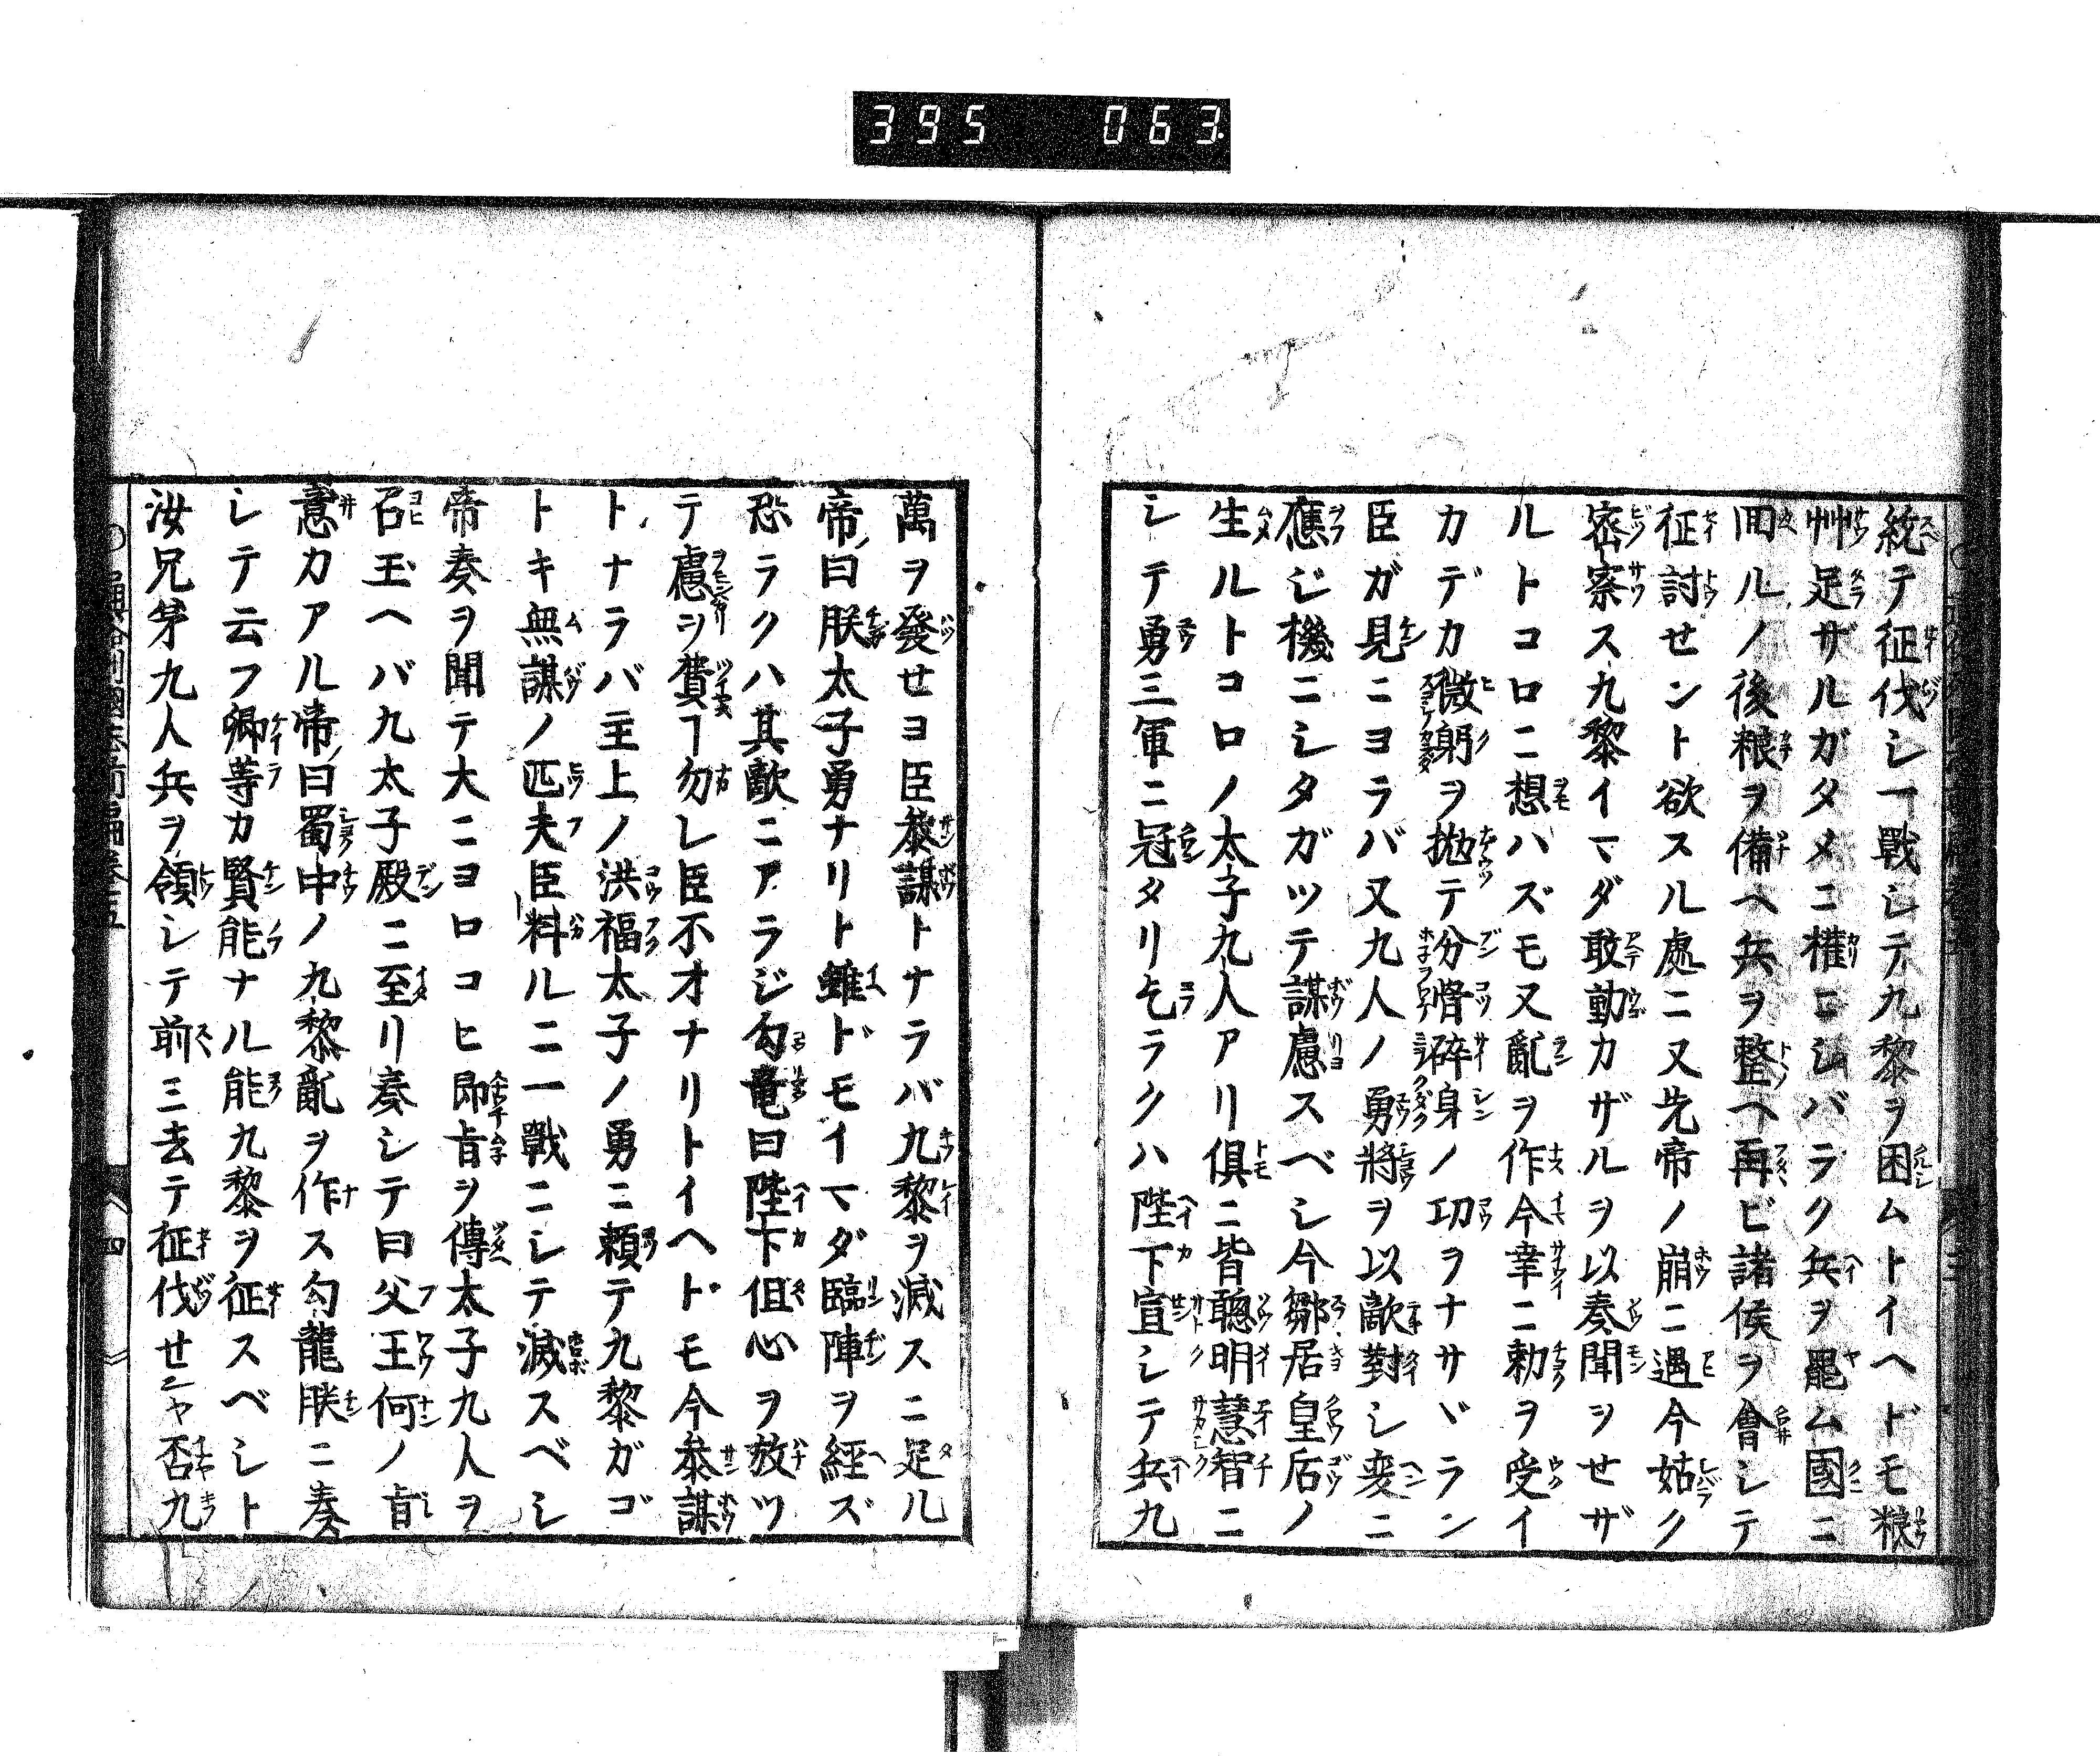 395 063
統テ征伐シ一戰シテ九黎ヲ困ムトイヘドモ粮
艸足ザルガタメニ權ニシバラク兵ヲ罷ム國ニ
囬ルノ後粮ヲ備ヘ兵ヲ整ヘ再ビ諸侯ヲ會シテ
征討せント欲スル處ニ又先帝ノ崩ニ遇今姑ク
密察ス九黎イマダ敢動カザルヲ以奏聞ヲせザ
ルトコロニ想ハズモ又亂ヲ作今幸ニ勅ヲ受イ
カデカ微躬ヲ拋テ分骨碎身ノ功ヲナサヾラン
臣ガ見ニヨラバ又九人ノ勇將ヲ以敵對シ変ニ
應ジ機ニシタガツテ謀慮スベシ今鄒居皇后ノ
生ルトコロノ太子九人アリ俱ニ皆聰明慧智ニ
シテ勇三軍ニ冠タリ乞ラクハ陛下宣シテ兵九
萬ヲ發せヨ臣叅謀トナラバ九黎ヲ滅スニ足ル
帝曰朕太子勇ナリト雖ドモイマダ臨陣ヲ經ズ
恐ラクハ其敵ニアラジ勾竜曰陛下但心ヲ放ツ
テ慮ヲ費ヿ勿レ臣不才ナリトイヘドモ今叅謀
トナラバ主上ノ洪福太子ノ勇ニ頼テ九黎ガゴ
トキ無謀ノ匹夫臣料ルニ一戰ニシテ滅スベシ
帝奏ヲ聞テ大ニヨロコヒ即旨ヲ傳太子九人ヲ
召玉ヘバ九太子殿ニ至リ奏シテ曰父王何ノ旨
意カアル帝曰蜀中ノ九黎亂ヲ作ス勾龍朕ニ奏
シテ云フ卿等カ賢能ナル能九黎ヲ征スベシト
汝兄弟九人兵ヲ領シテ前ミ去テ征伐せンヤ否九